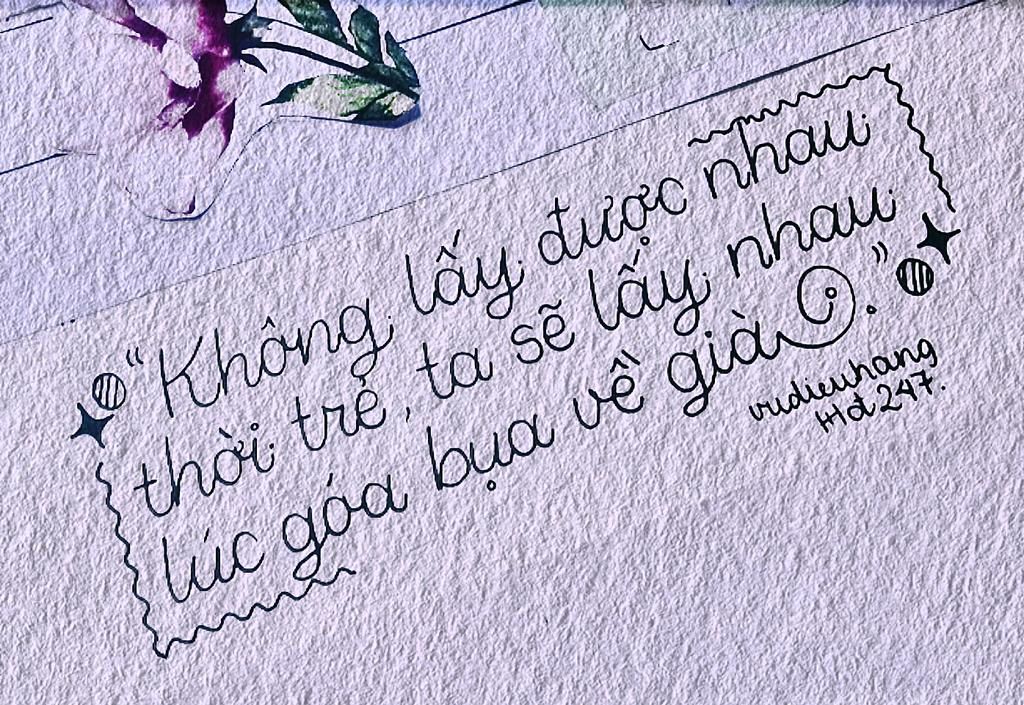 “Không lấy được nhau
thời trẻ, ta sẽ lấy nhau
lúc góa bụa về già.”
vudieuhang
Hđ 247.